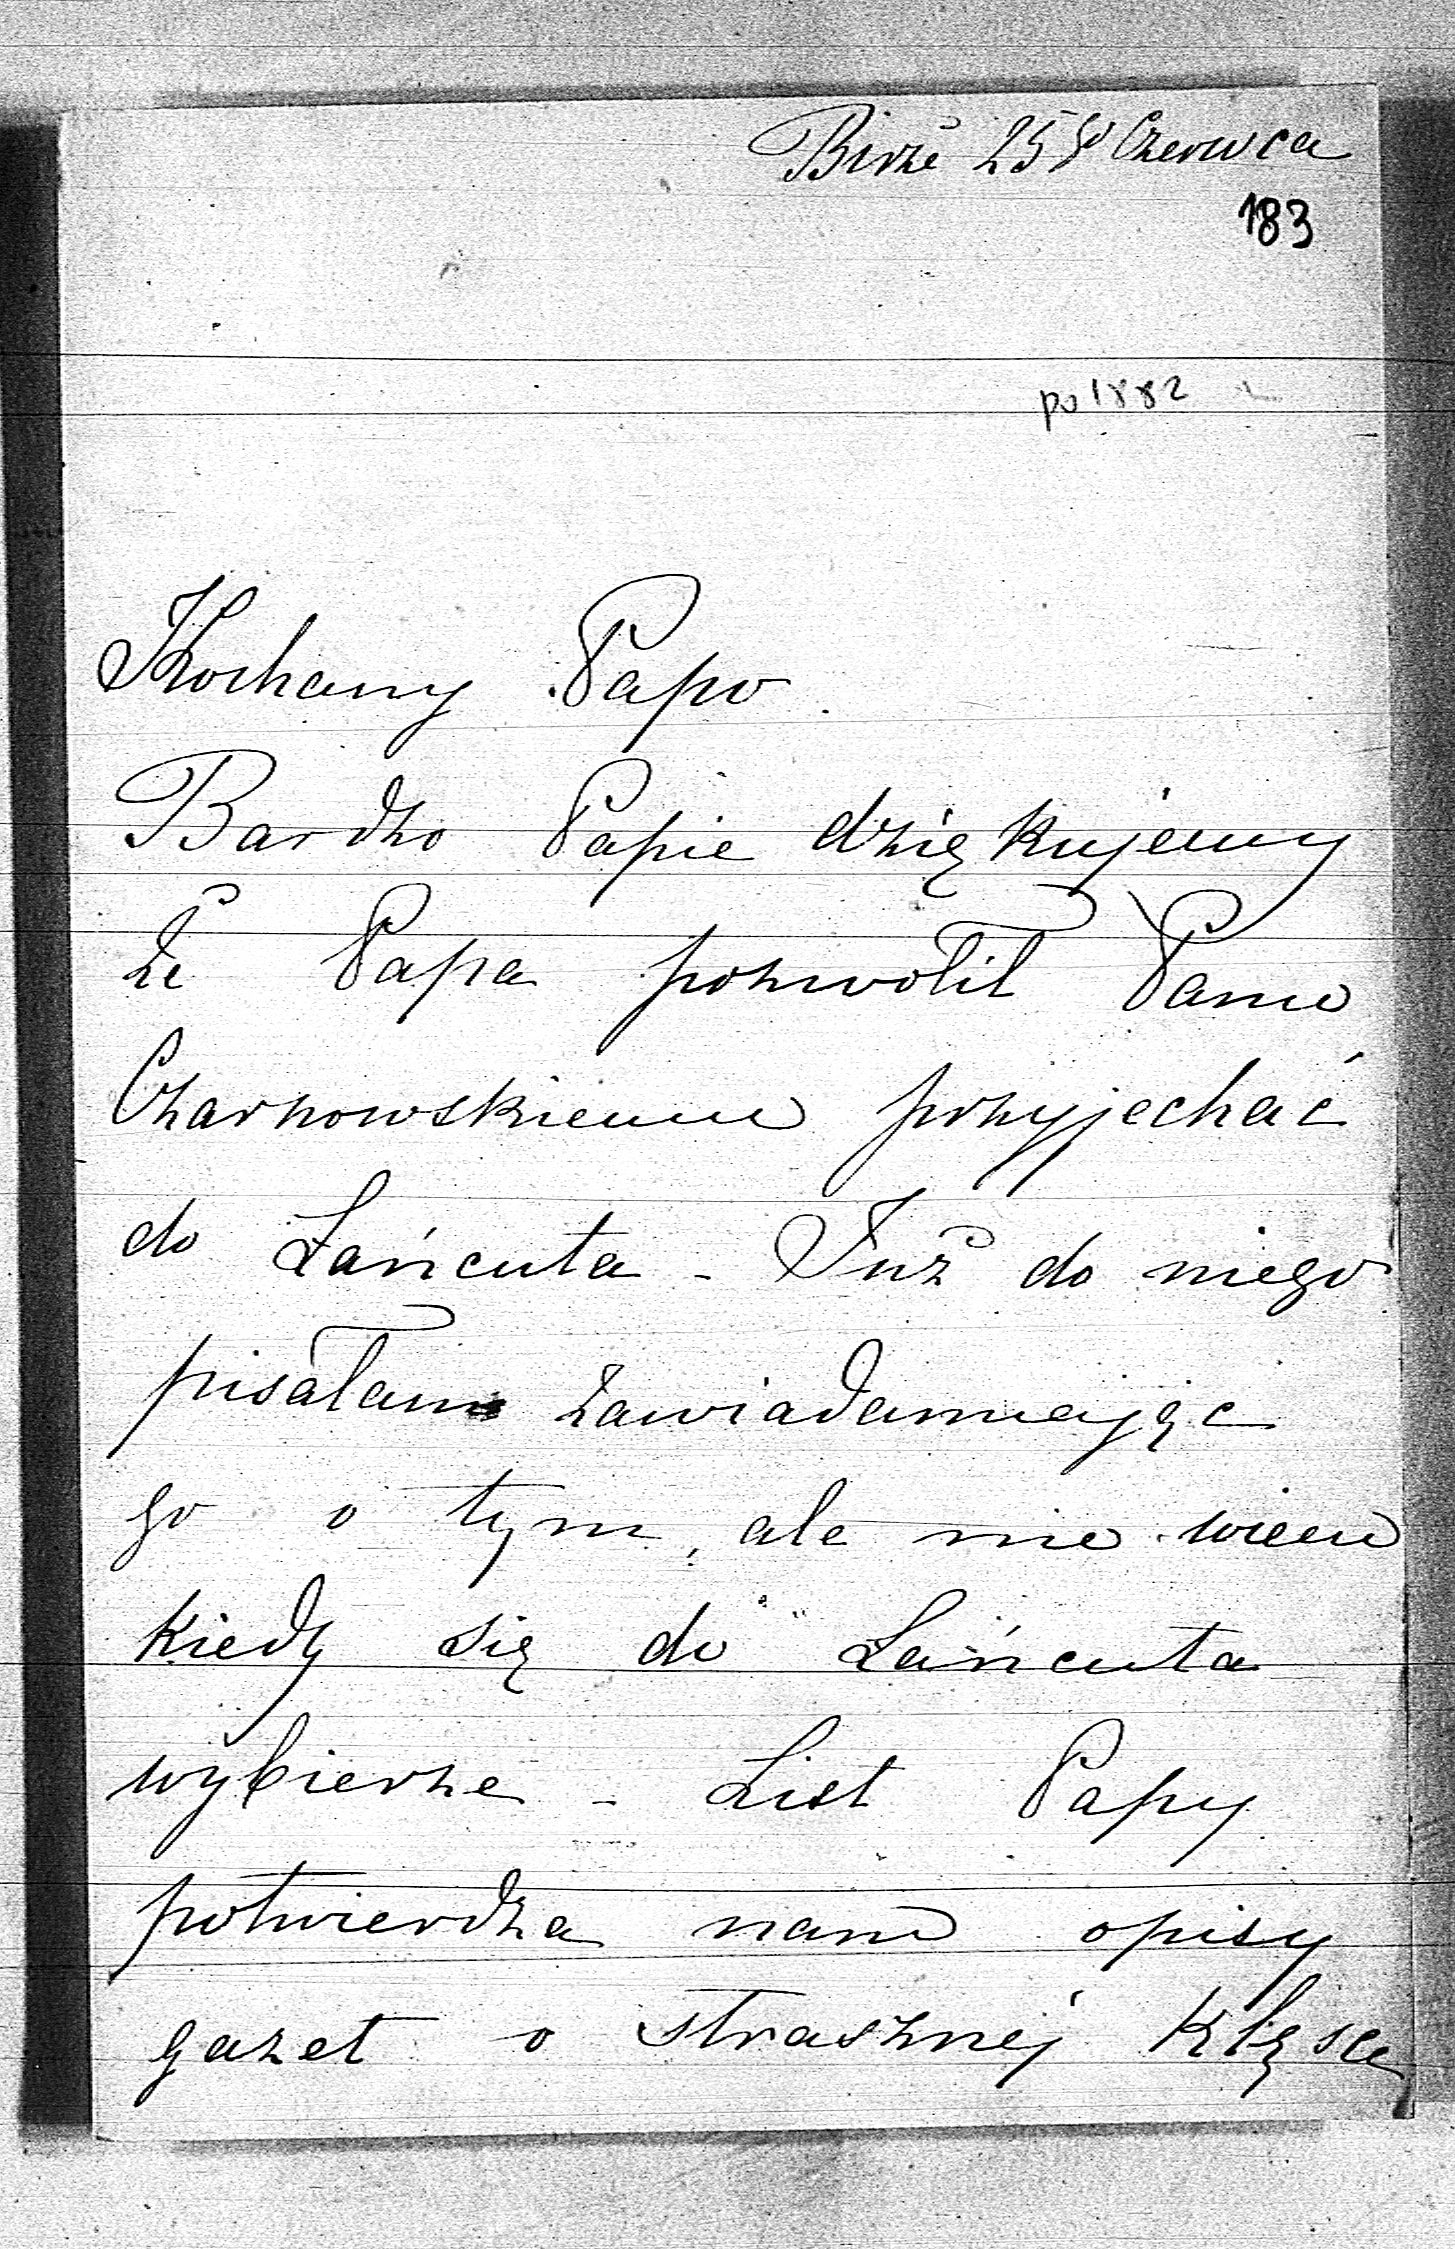 Birże 25go Czerwca
183
po 1882
Kochany Papo.
Bardzo Papie dziękujemy
że Papa pozwolił Panu
Czarnowskiemu przyjechać
do Łańcuta - Już do niego
pisałam zawiadamiając
go o tym, ale nie wiem
kiedy się do Łańcuta
wybierze - List Papy
potwierdza nam opisy
gazet o strasznej klęsce